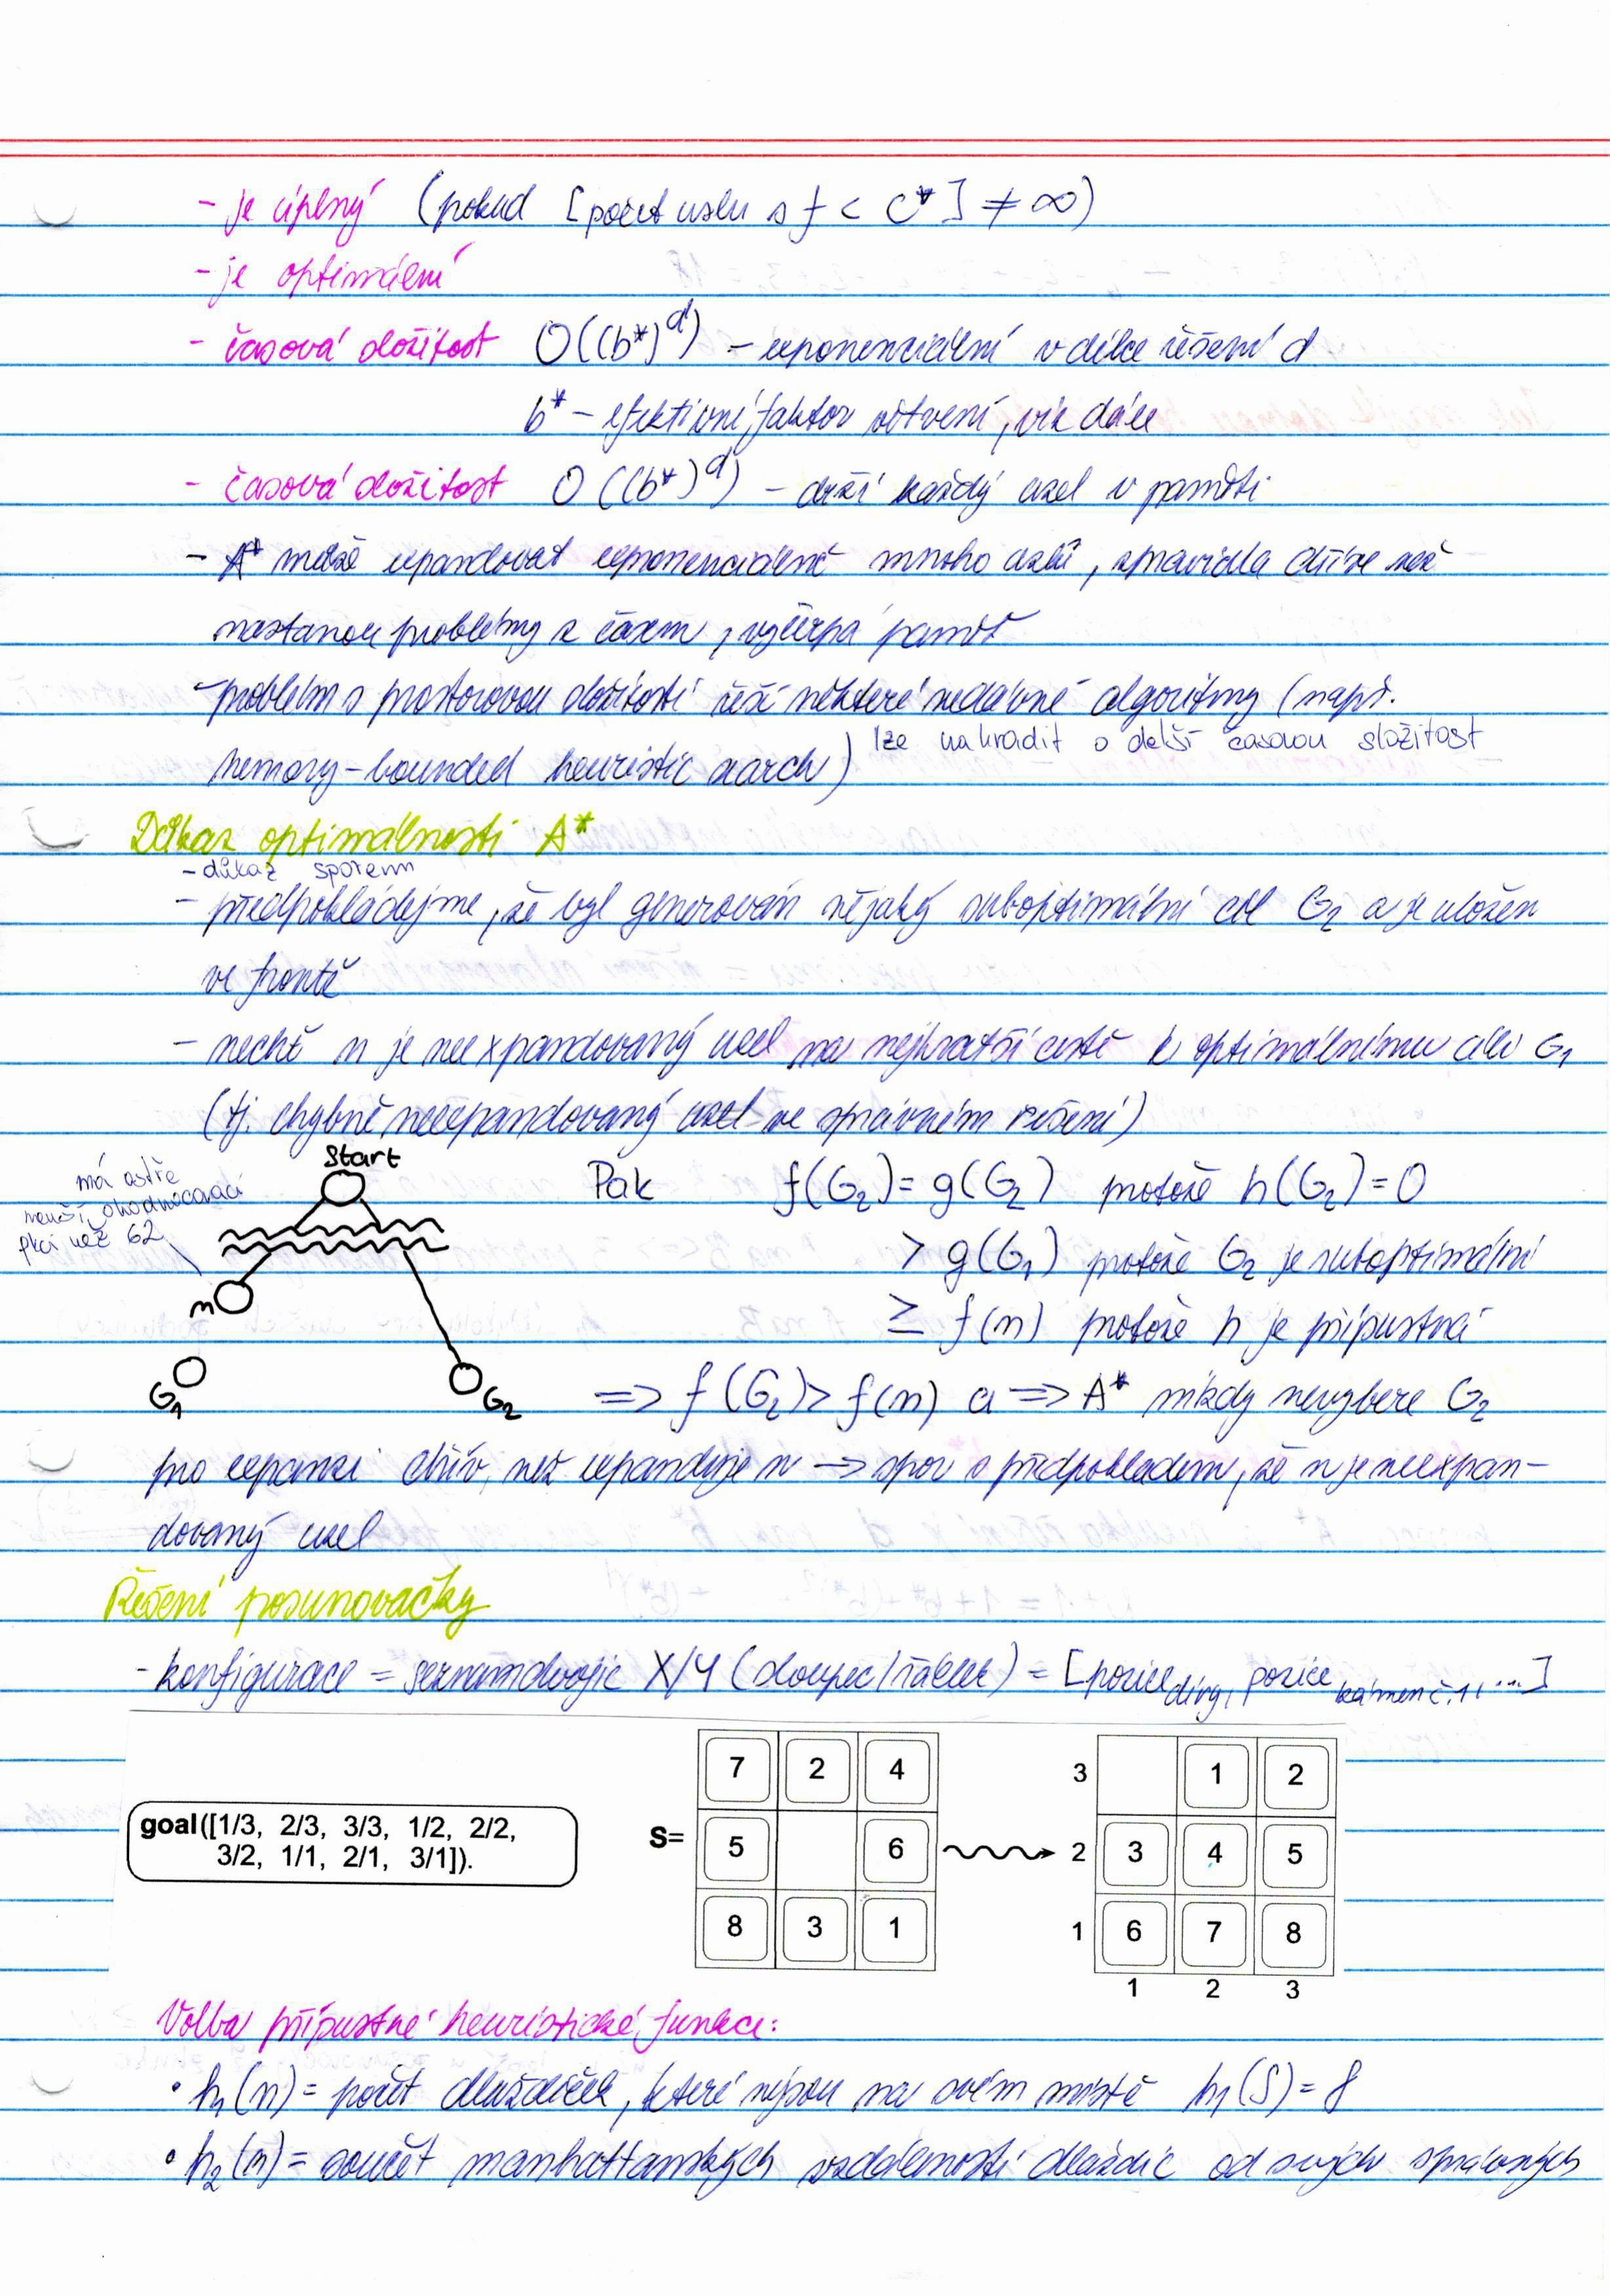 - je úplný (pokud [počet uzlu s f < C*] ≠ ∞)
- je optimální
- časová složitost O((b*)^d) – exponenciální v délce řešení d
b* – efektivní faktor větvení, viz dále
- časová složitost O((b*)^d) – drží každý uzel v paměti
- A* může expandovat exponenciálně mnoho uzlů, zpravidla dříve než
nastanou problémy s časem, vyčerpá paměť
- problém s prostorovou složitostí řeší některé nedávné algoritmy (např.
memory-bounded heuristic search) lze nahradit o delší časovou složitost
Důkaz optimálnosti A*
- důkaz sporem
- předpokládejme, že byl generován nějaký suboptimální cíl G₂ a je uložen
ve frontě
- nechť n je neexpandovaný uzel na nejkratší cestě k optimálnímu cíli G₁
(tj. chybně neexpandovaný uzel ve správném řešení)
Start
má ostře
menší ohodnocovací
fkci než G2
n
G₁
G₂
Pak f(G₂) = g(G₂) protože h(G₂) = 0
> g(G₁) protože G₂ je suboptimální
≥ f(n) protože h je přípustná
=> f(G₂) > f(n) a => A* nikdy nevybere G₂
pro expanzi dřív, než expanduje n → spor s předpokladem, že n je neexpan-
dovaný uzel
Řešení posunovačky
- konfigurace = seznam dvojic X/Y (sloupec/řádek) = [pozice díry, pozice kámen č.1, ...]
goal([1/3, 2/3, 3/3, 1/2, 2/2,
3/2, 1/1, 2/1, 3/1]).
S=
7 2 4
5 6
8 3 1
3 1 2
2 3 4 5
1 6 7 8
1 2 3
Volba přípustné heuristické funkce:
• h₁(n) = počet dlaždiček, které nejsou na svém místě h₁(S) = 8
• h₂(n) = součet manhattanských vzdáleností dlaždic od svých správných